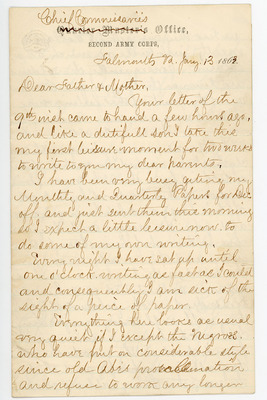 Chief Commissaries
Quarter Master's Office,
SECOND ARMY CORPS,
Falmouth Va. Jany. 13 1863.
Dear Father & Mother,
Your letter of the
9th inst came to hand a few hours ago,
and like a dutifull son I take this
my first leisure moment for two weeks
to write to you my dear parents.
I have been very busy getting my
Monthly and Quarterly Papers for Dec
off, and just sent them this morning
so I expect a little leisure now, to
do some of my own writing.
Every night I have sat up until
one o'clock writing as fast as I could
and consequently I am sick of the
sight of a peice of paper.
Everything here looks as usual
very quiet, except the Negroes
who have put on considerable style
since old Abe's proclamation
and refuse to work any longer